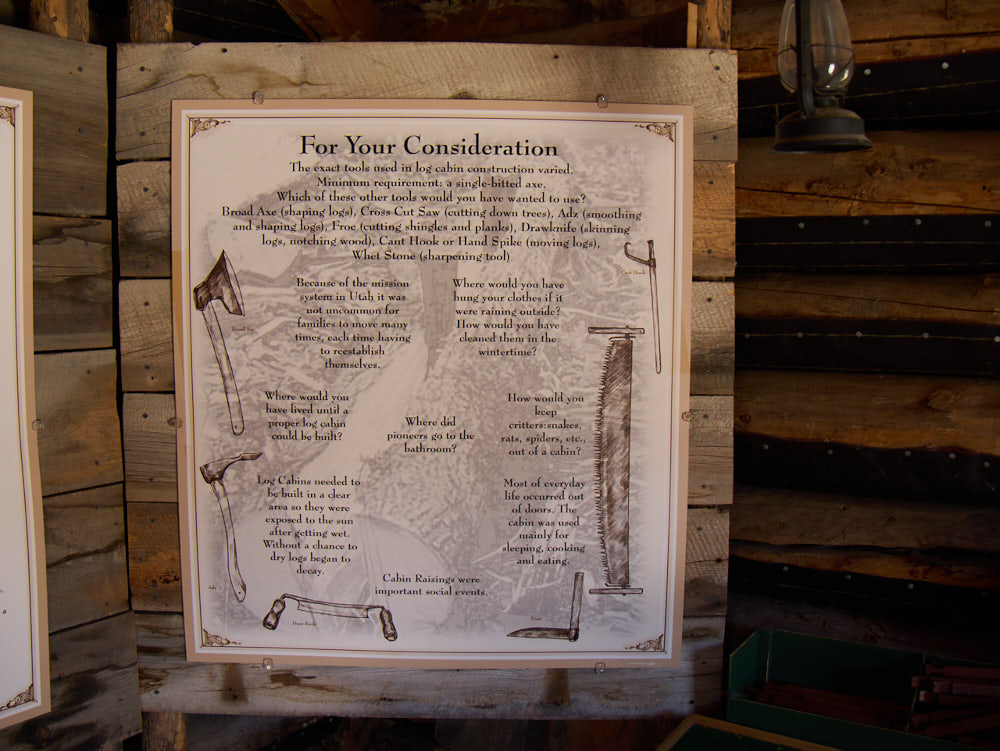 For Your Consideration
The exact tools used in log cabin construction varied.
Minimum requirement: a single-bitted axe,
Which of these other tools would you have wanted to use?
Broad Axe (shaping logs), Cross Cut Saw (cutting down trees), Adz (smoothing
and shaping logs), Froe (cutting shingles and planks), Drawknife (skinning
logs, notching wood), Cant Hook or Hand Spike (moving logs),
Whet Stone (sharpening tool)
Cant Hook
Because of the mission
system in Utah it was
not uncommon for
families to move many
times, each time having
to reestablish
themselves.
Where would you have
hung your clothes if it
were raining outside?
How would you have
cleaned them in the
wintertime?
Broad Axe
Where would you
have lived until a
proper log cabin
could be built?
Where did
pioneers go to the
bathroom?
How would you
keep
critters:snakes,
rats, spiders, etc.,
out of a cabin?
Log Cabins needed to
be built in a clear
area so they were
exposed to the sun
after getting wet.
Without a chance to
dry logs began to
decay.
Most of everyday
life occurred out
of doors. The
cabin was used
mainly for
sleeping, cooking
and eating.
Cabin Raisings were
important social events.
Adz
Draw Knife
Froe
a